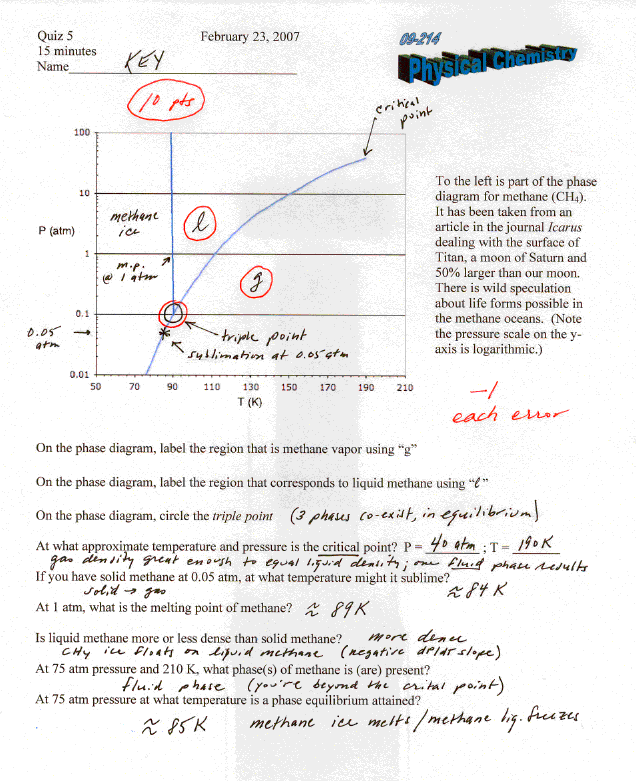 Quiz 5 February 23, 2007 09-214
15 minutes
Name KEY Physical Chemistry
10 pts
critical
point
100
10
P (atm)
1
0.1
0.01
methane
ice
l
m.p.
@ 1 atm
g
0.05
atm
triple point
sublimation at 0.05 atm
50 70 90 110 130 150 170 190 210
T (K)
To the left is part of the phase
diagram for methane (CH₄).
It has been taken from an
article in the journal Icarus
dealing with the surface of
Titan, a moon of Saturn and
50% larger than our moon.
There is wild speculation
about life forms possible in
the methane oceans. (Note
the pressure scale on the y-
axis is logarithmic.)
-1
each error
On the phase diagram, label the region that is methane vapor using “g”
On the phase diagram, label the region that corresponds to liquid methane using “ℓ”
On the phase diagram, circle the triple point (3 phases co-exist, in equilibrium)
At what approximate temperature and pressure is the critical point? P = 40 atm ; T = 190K
gas density great enough to equal liquid density; one fluid phase results
If you have solid methane at 0.05 atm, at what temperature might it sublime? ≈ 84 K
solid → gas
At 1 atm, what is the melting point of methane? ≈ 89K
Is liquid methane more or less dense than solid methane? more dense
CH4 ice floats on liquid methane (negative dP/dT slope)
At 75 atm pressure and 210 K, what phase(s) of methane is (are) present?
fluid phase (you're beyond the crital point)
At 75 atm pressure at what temperature is a phase equilibrium attained?
≈ 85K methane ice melts/methane liq. freezes